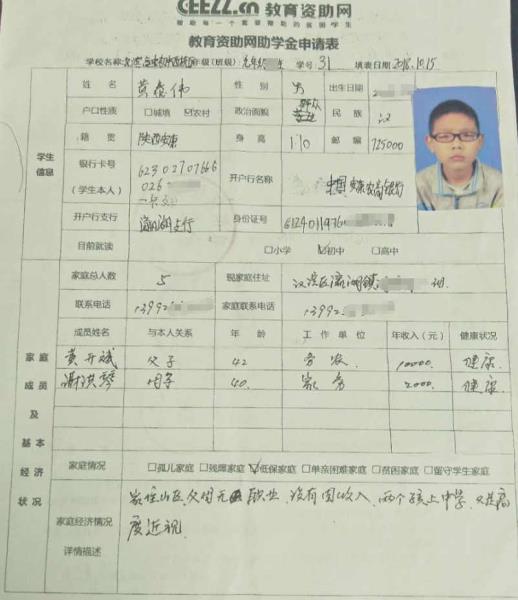 CEEZZ.cn 教育资助网
帮助每一个需要帮助的贫困学生
教育资助网助学金申请表
学校名称: 年级(班级): 学号: 31 填表日期 2018.10.15
姓名 黄 伟 性别 男 出生日期
户口性质 □城镇 ☑农村 政治面貌 群众 民族 汉
籍贯 陕西安康 身高 1.70 邮编 725000
学生信息
银行卡号 (学生本人) 62302707666
026
开户行名称 中国 安康农商银行
开户行支行 瀛湖支行 身份证号 6124011976
目前就读 □小学 ☑初中 □高中
家庭总人数 5 现家庭住址 汉滨区瀛湖镇
联系电话 1399 家庭联系电话 1399
成员姓名 与本人关系 年龄 工作单位 年收入(元) 健康状况
黄开斌 父子 42 务农 10000 健康
谢洪琴 母子 40 家务 2000 健康
家庭成员及基本经济状况
家庭情况 □孤儿家庭 □残障家庭 ☑低保家庭 □单亲困难家庭 □贫困家庭 □留守学生家庭
家庭经济情况详情描述
家住山区,父母无 职业,没有固收入,两个孩上中学,又是高
度近视